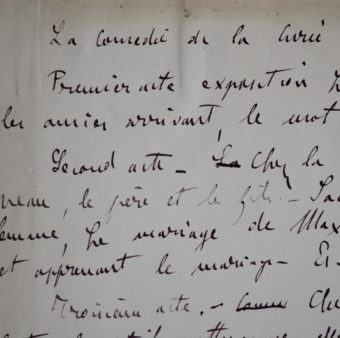 La comedie de la Curée
Premier acte exposition
les amies arrivant, le mot
Second acte - La Chez la
neau, le père et le fils - Sac
femme, Le mariage de Max
et apprenant le mariage - Es
Troisième acte. -